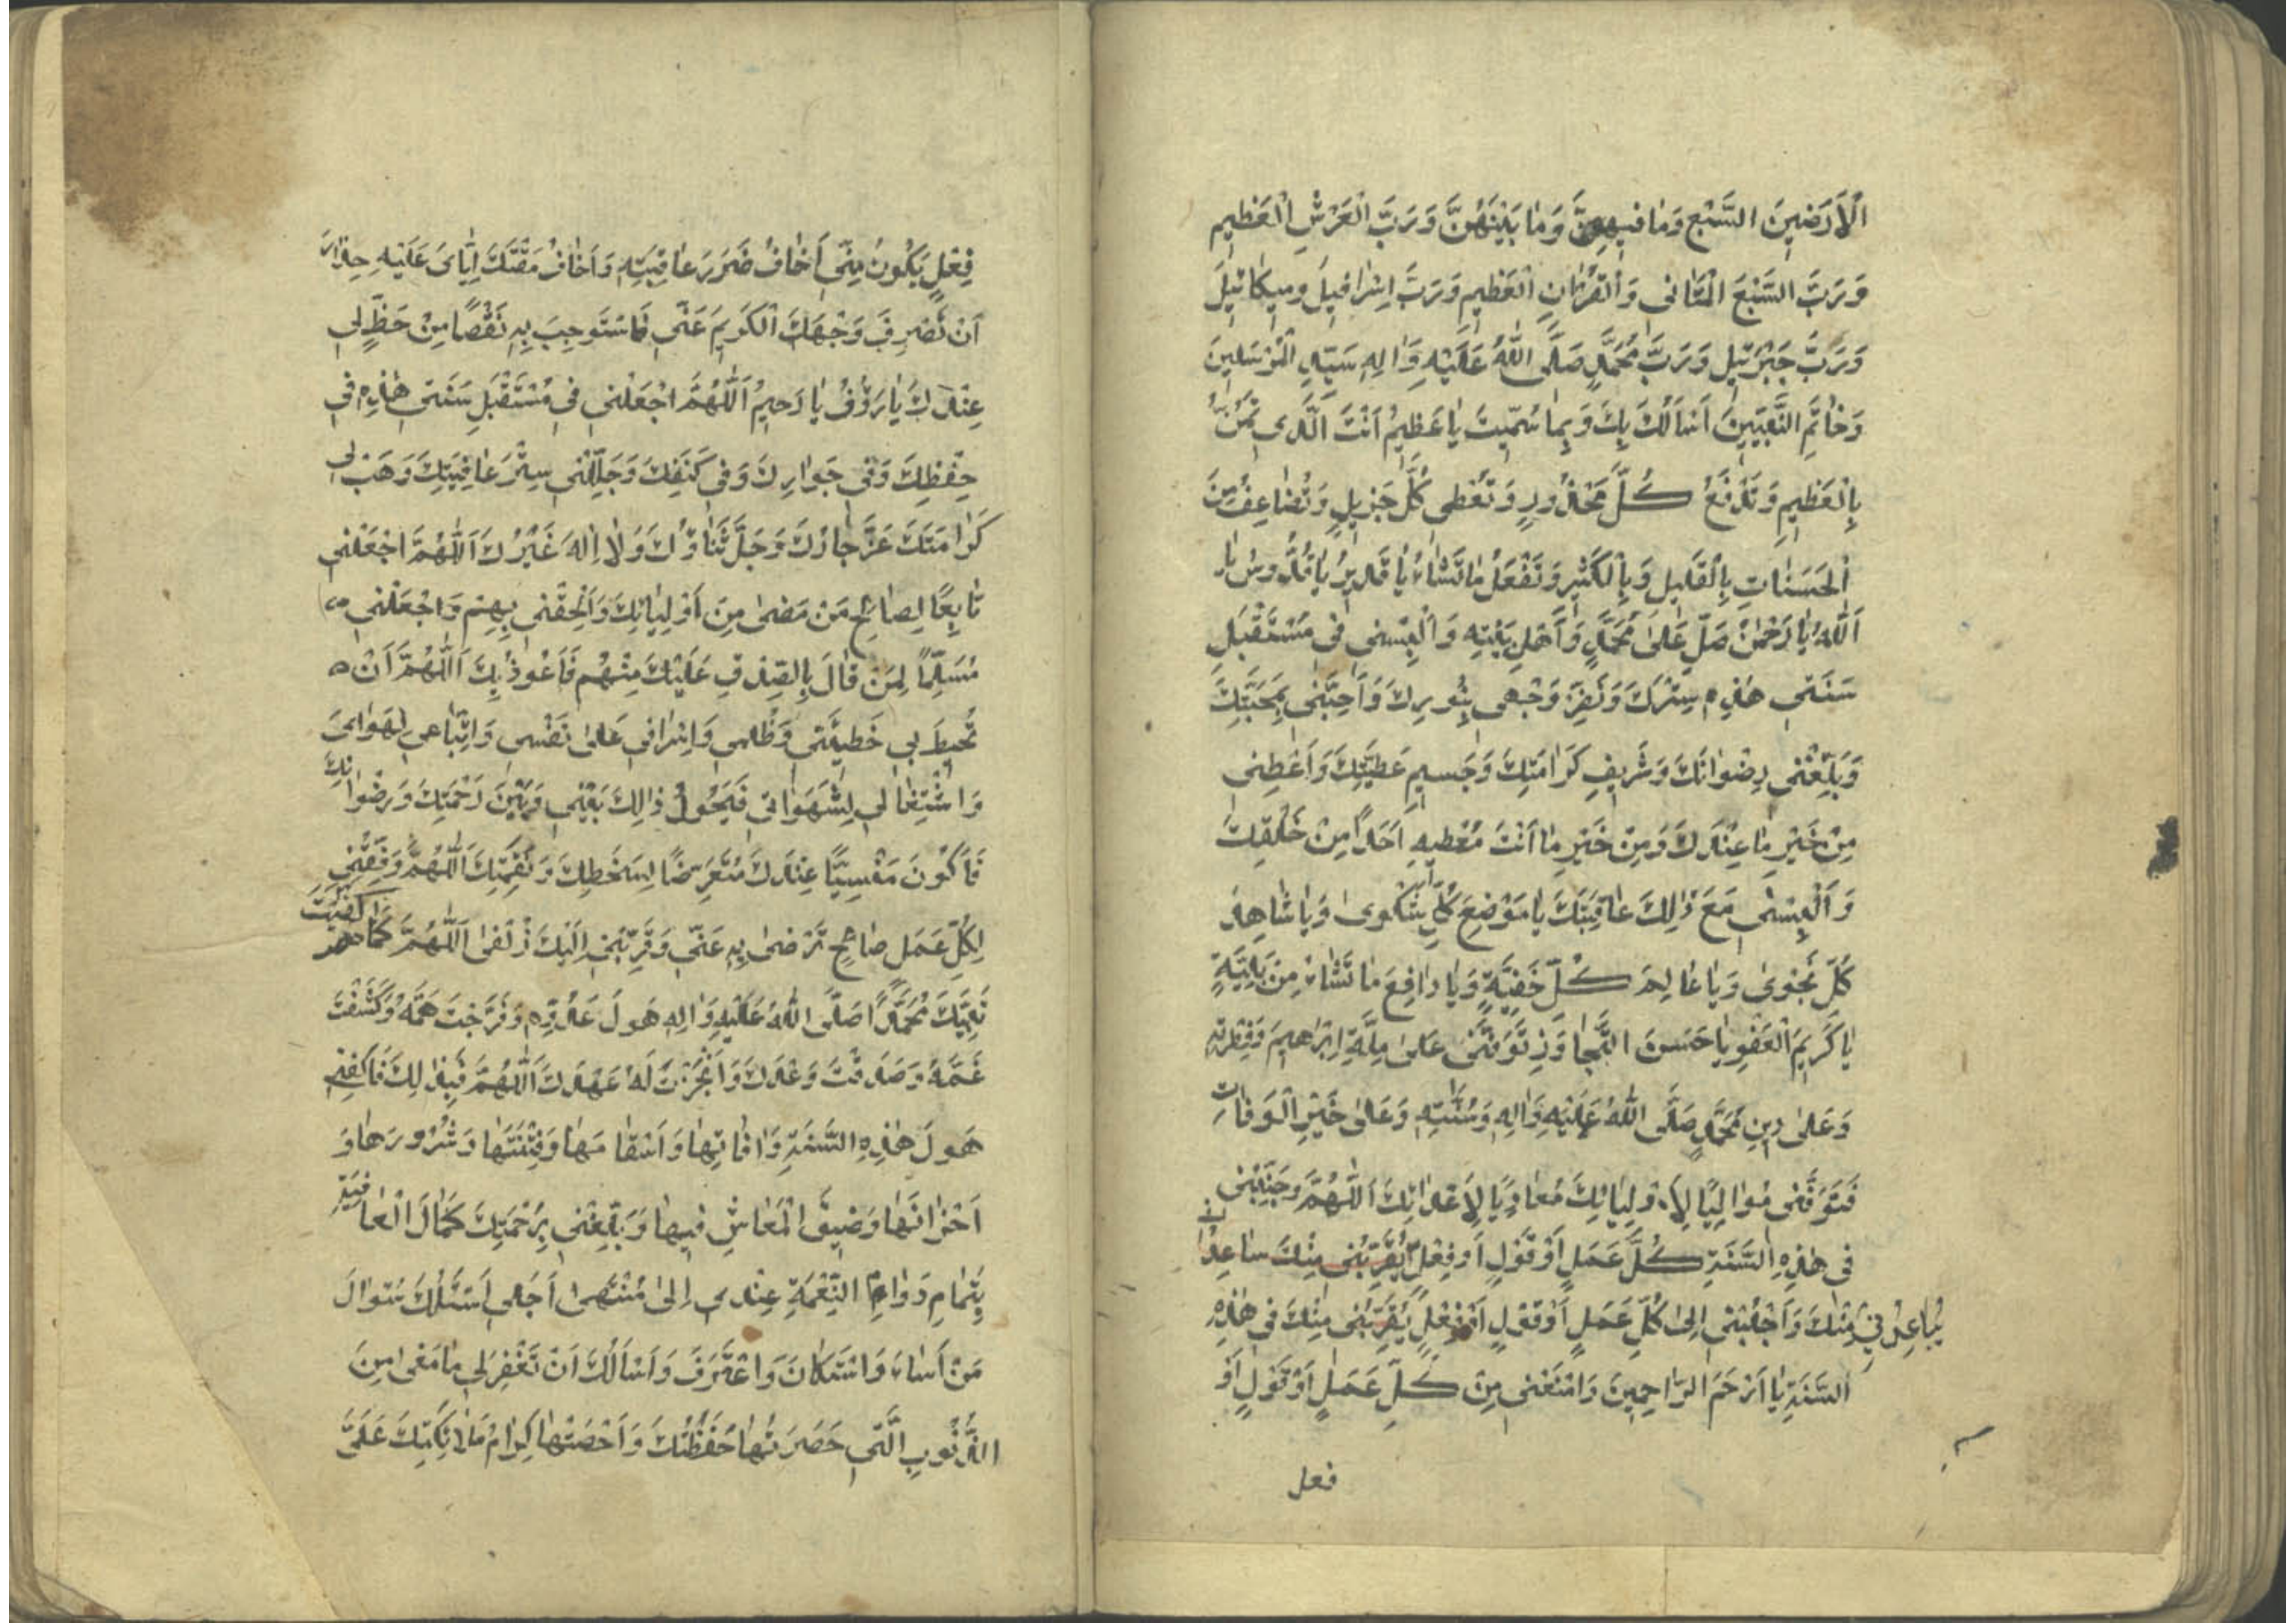 اَلْاَرَضينَ السَّبْعِ وَمٰا فيهِنَّ وَمٰا بَيْنَهُنَّ وَرَبَّ الْعَرْشِ الْعَظيمِ
وَرَبَّ السَّبْعَ الْمَثٰانى وَالْقُرْاٰنِ الْعَظيمِ وَرَبَّ اِسْرٰافيلَ وَميكٰائيلَ
وَرَبَّ جَبْرَئيلَ وَرَبَّ مُحَمَّدٍ صَلَّى اللّٰهُ عَلَيْهِ وَاٰلِهِ سَيِّدِ الْمُرْسَلينَ
وَخٰاتَمِ النَّبِيّينَ اَسْاَلُكَ بِكَ وَبِمٰا سَمَّيْتَ يٰا عَظيمُ اَنْتَ الَّذى تَمُنُّ
بِالْعَظيمِ وَتَدْفَعُ كُلَّ مَحْذُورٍ وَتُعْطى كُلَّ جَزيلٍ وَتُضٰاعِفُ مِنَ
الْحَسَنٰاتِ بِالْقَليلِ وَبِالْكَثيرِ وَتَفْعَلُ مٰا تَشٰاءُ يٰا قَديرُ يٰا قُدُّوسُ يٰا
اَللّٰهُ يٰا رَحْمٰنُ صَلِّ عَلىٰ مُحَمَّدٍ وَاَهْلِ بَيْتِهِ وَاَلْبِسْنى فى مُسْتَقْبَلِ
سَنَتى هٰذِهِ سِتْرَكَ وَنَضِّرْ وَجْهى بِنُورِكَ وَاَحِبَّنى بِمَحَبَّتِكَ
وَبَلِّغْنى رِضْوٰانَكَ وَشَريفِ كَرٰامَتِكَ وَجَسيمِ عَطِيَّتِكَ وَاَعْطِنى
مِنْ خَيْرِ مٰا عِنْدَكَ وَمِنْ خَيْرِ مٰا اَنْتَ مُعْطيهِ اَحَدًا مِنْ خَلْقِكَ
وَاَلْبِسْنى مَعَ ذٰلِكَ عٰافِيَتَكَ يٰا مَوْضِعَ كُلِّ شَكْوىٰ وَيٰا شٰاهِدَ
كُلِّ نَجْوىٰ وَيٰا عٰالِمَ كُلِّ خَفِيَّةٍ وَيٰا دٰافِعَ مٰا تَشٰاءُ مِنْ بَلِيَّةٍ
يٰا كَريمَ الْعَفْوِ يٰا حَسَنَ التَّجٰاوُزِ تَوَفَّنى عَلىٰ مِلَّةِ اِبْرٰهيمَ وَفِطْرَتِهِ
وَعَلىٰ دينِ مُحَمَّدٍ صَلَّى اللّٰهُ عَلَيْهِ وَاٰلِهِ وَسُنَّتِهِ وَعَلىٰ خَيْرِ الْوَفٰاتِ
فَتَوَفَّنى مُوٰالِيًا لِاَوْلِيٰائِكَ مُعٰادِيًا لِاَعْدٰائِكَ اَللّٰهُمَّ وَجَنِّبْنى
فى هٰذِهِ السَّنَةِ كُلَّ عَمَلٍ اَوْ قَوْلٍ اَوْ فِعْلٍ يُقَرِّبُنى مِنْكَ
يُبٰاعِدُنى مِنْكَ وَاَجْلِبْنى اِلىٰ كُلِّ عَمَلٍ اَوْ قَوْلٍ اَوْ فِعْلٍ يُقَرِّبُنى مِنْكَ فى هٰذِهِ
السَّنَةِ يٰا اَرْحَمَ الرّٰاحِمينَ وَامْنَعْنى مِنْ كُلِّ عَمَلٍ اَوْ قَوْلٍ اَوْ
فعل
فِعْلٍ يَكُونُ مِنّى اَخٰافُ ضَرَرَ عٰاقِبَتِهِ وَاَخٰافُ مَقْتَكَ اِيّٰاىَ عَلَيْهِ حِذٰارَ
اَنْ تَصْرِفَ وَجْهَكَ الْكَريمَ عَنّى فَاَسْتَوجِبَ بِهِ نَقْصًا مِنْ حَظٍّ لى
عِنْدَكَ يٰا رَؤُفُ يٰا رَحيمُ اَللّٰهُمَّ اجْعَلْنى فى مُسْتَقْبَلِ سَنَتى هٰذِهِ فى
حِفْظِكَ وَفى جَوٰارِكَ وَفى كَنَفِكَ وَجَلِّلْنى سِتْرَ عٰافِيَتِكَ وَهَبْ لى
كَرٰامَتَكَ عَزَّ جٰارُكَ وَجَلَّ ثَنٰاؤُكَ وَلٰا اِلٰهَ غَيْرُكَ اَللّٰهُمَّ اجْعَلْنى
تٰابِعًا لِصٰالِحِ مَنْ مَضىٰ مِنَ اَوْلِيٰائِكَ وَاَلْحِقْنى بِهِمْ وَاجْعَلْنى
مُسَلِّمًا لِمَنْ قٰالَ بِالصِّدْقِ عَلَيْكَ مِنْهُمْ فَاَعُوذُ بِكَ اَللّٰهُمَّ اَنْ
تُحيطَ بى خَطيئَتى وَظُلْمى وَاِسْرٰافى عَلىٰ نَفْسى وَاتِّبٰاعى لِهَوٰاىَ
وَاشْتِغٰالى بِشَهَوٰاتى فَيَحُولُ ذٰلِكَ بَيْنى وَبَيْنَ رَحْمَتِكَ وَرِضْوٰانِكَ
فَاَكُونَ مَنْسِيًّا عِنْدَكَ مُتَعَرِّضًا لِسَخَطِكَ وَنَقِمَتِكَ اَللّٰهُمَّ وَفِّقْنى
لِكُلِّ عَمَلٍ صٰالِحٍ تَرْضىٰ بِهِ عَنّى وَقَرِّبْنى اِلَيْكَ زُلْفىٰ اَللّٰهُمَّ كَمٰا كَفَيْتَ
نَبِيَّكَ مُحَمَّدًا صَلَّى اللّٰهُ عَلَيْهِ وَاٰلِهِ هَولَ عَدُوِّهِ وَفَرَّجْتَ هَمَّهُ وَكَشَفْتَ
غَمَّهُ وَصَدَقْتَ وَعْدَكَ وَاَنْجَزْتَ لَهُ عَهْدَكَ اَللّٰهُمَّ فَبِذٰلِكَ فَاكْفِنى
هَولَ هٰذِهِ السَّنَةِ وَاٰفٰاتِهٰا وَاَسْقٰامَهٰا وَفِتْنَتَهٰا وَشُرُورَهٰا وَ
اَحْزٰانَهٰا وَضيقَ الْمَعٰاشِ فيهٰا وَبَلِّغْنى بِرَحْمَتِكَ كَمٰالَ الْعٰافِيَةِ
بِتَمٰامِ دَوٰامِ النِّعْمَةِ عِنْدى اِلىٰ مُنْتَهىٰ اَجَلى اَسْئَلُكَ سُئوٰالَ
مَنْ اَسٰاءَ وَاسْتَكٰانَ وَاعْتَرَفَ وَاَسْاَلُكَ اَنْ تَغْفِرَ لى مٰا مَضىٰ مِنَ
الذُّنُوبِ الَّتى حَصَرَتْهٰا حَفَظَتُكَ وَاَحْصَتْهٰا كِرٰامُ مَلٰائِكَتِكَ عَلَىَّ